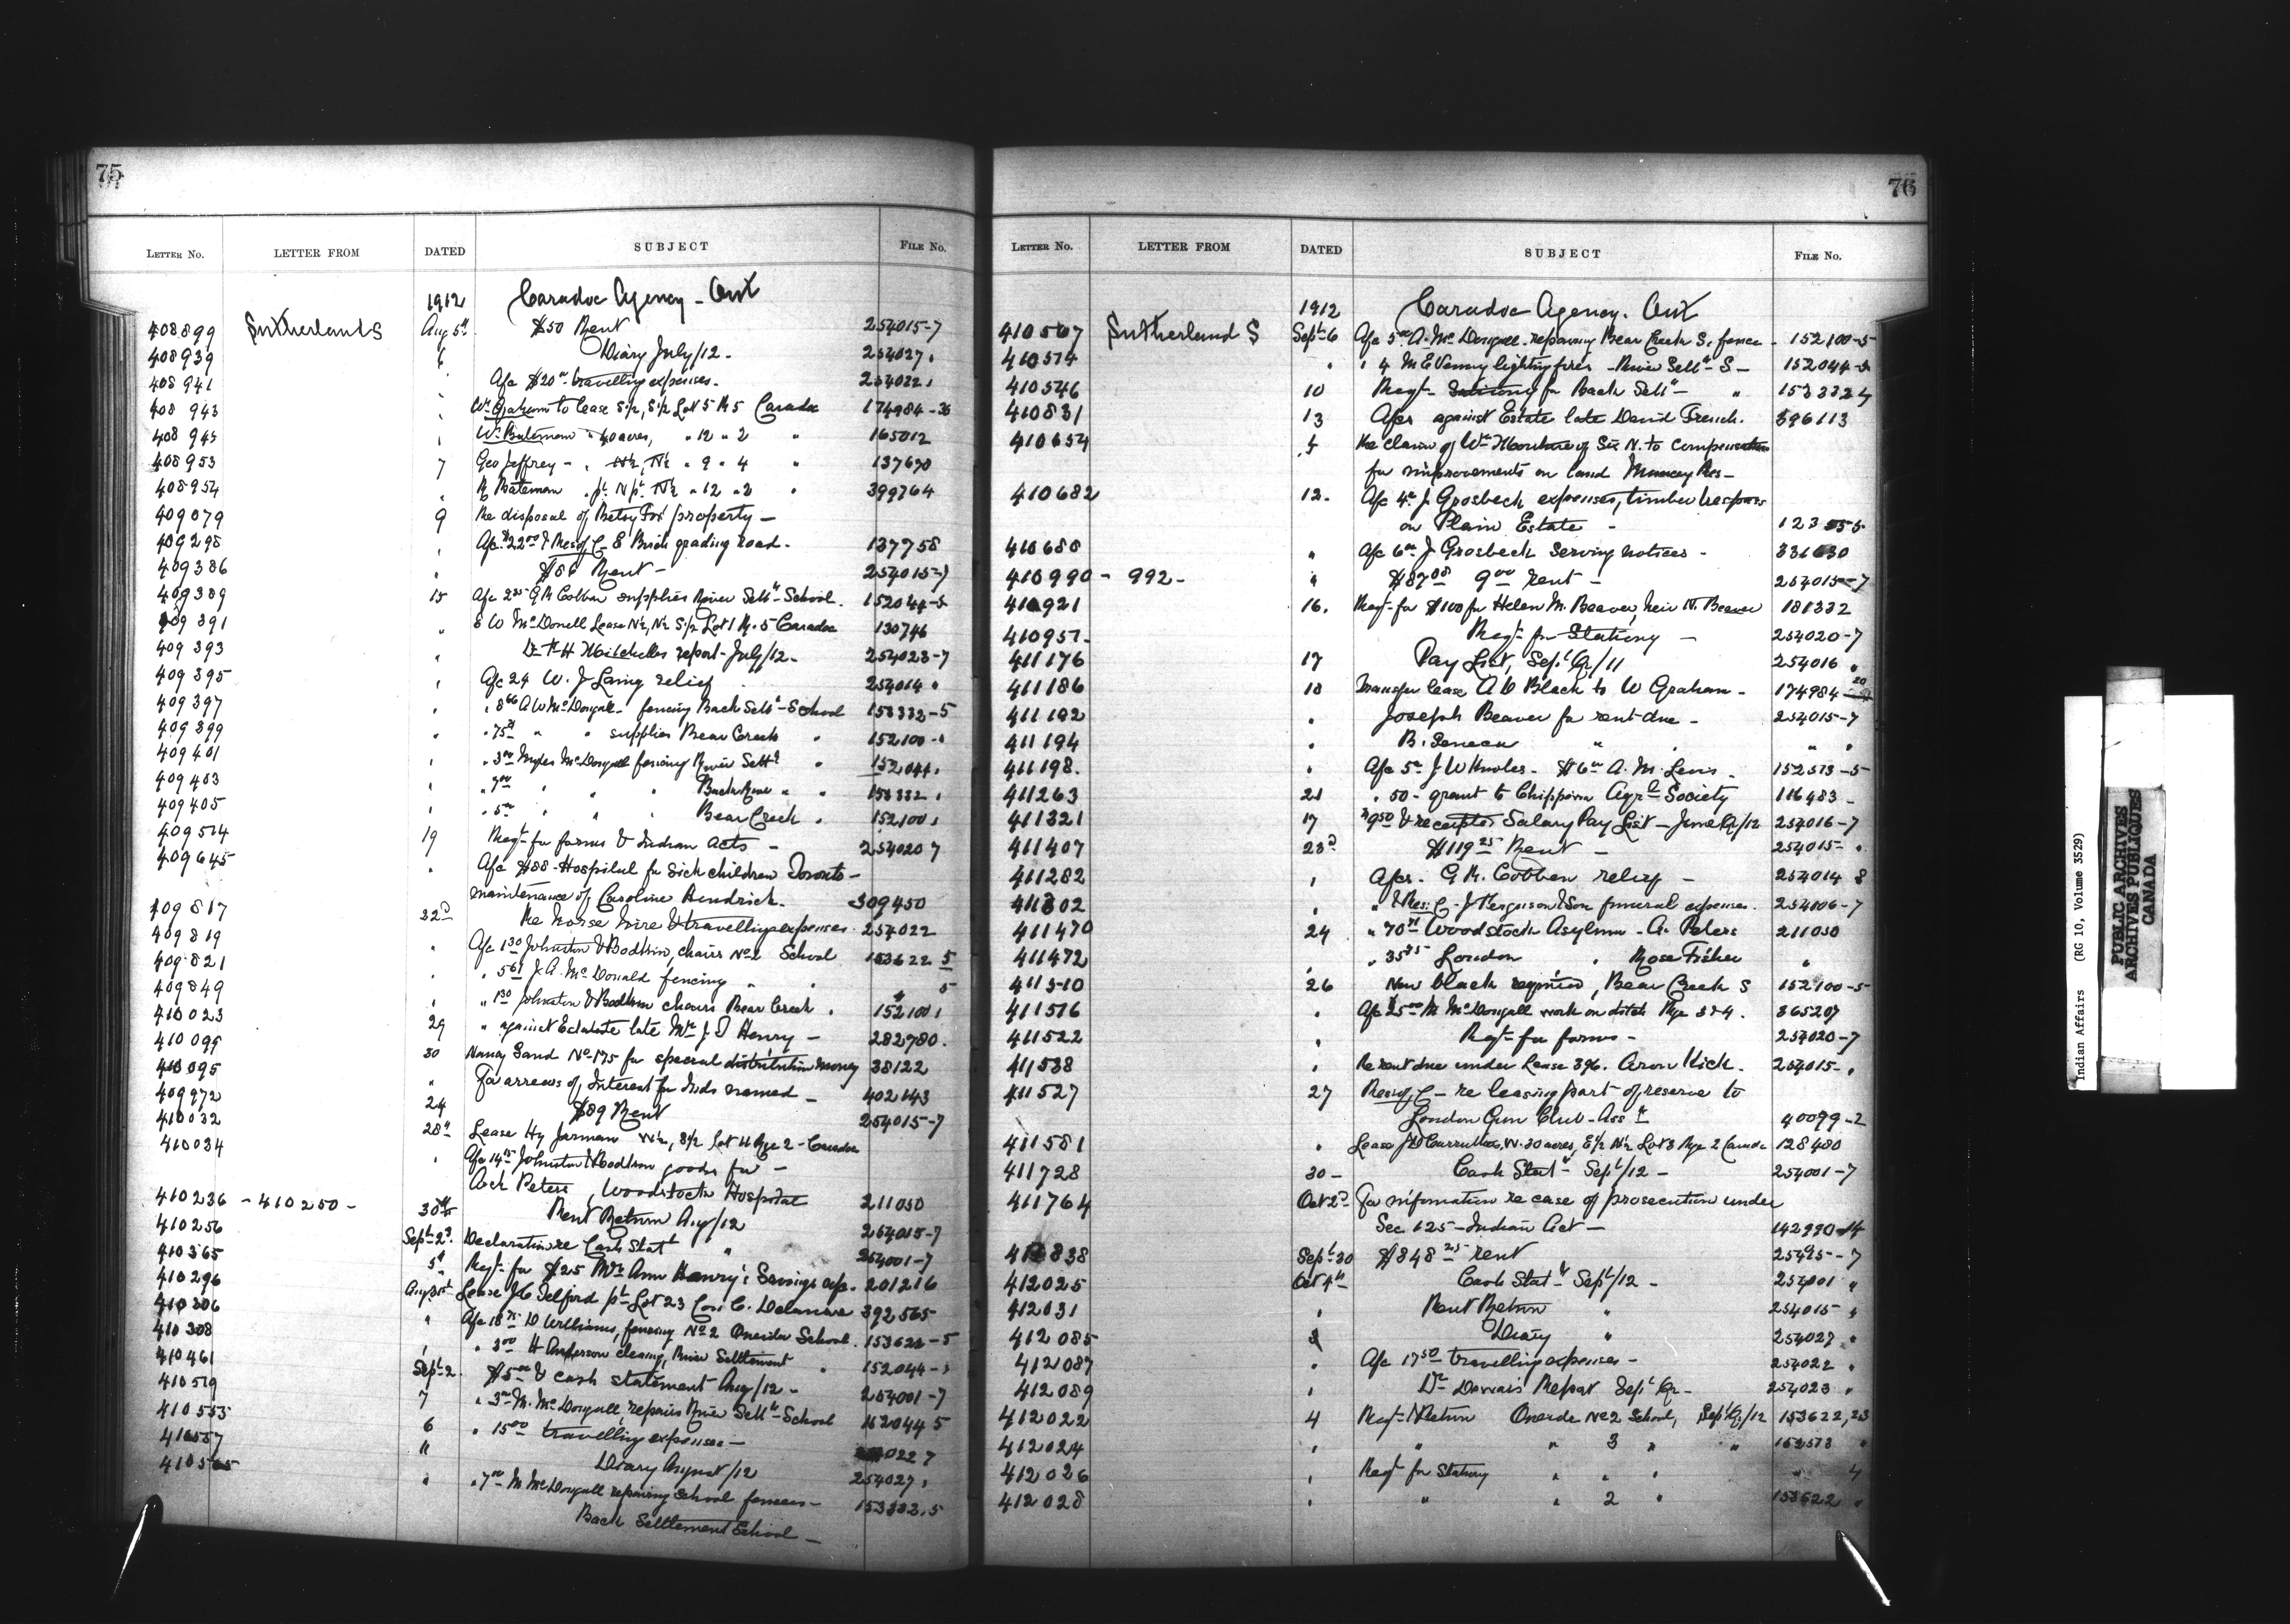 75
LETTER No. LETTER FROM DATED SUBJECT FILE No.
1912 Caradoc Agency - Ont
408899 Sutherland S Aug 5th $50 Rent 254015-7
408939 6 Diary July/12 - 254027 "
408941 " A/c $20 00 travelling expenses - 254022 "
408943 " Wm Graham to lease S1/2, S1/2 Lot 5 R 5 Caradoc 174984-
408945 " Wm Bateman " 40 acres, " 12 " 2 " 165012
408953 7 Geo Jeffrey - " N1/2, N1/2 " 9 " 4 " 137690
408954 " R Bateman " pt N pt N1/2 " 12 " 2 " 399764
409079 9 Re disposal of Betsy Fox property -
409298 " A/c $22 00 & Res of C - E Burch grading road - 137758
409386 " $86 Rent - 254015-7
409389 15 A/c 2 25 G R Cobban supplies River Settt School. 152044-5
409391 " E W McDonell Lease N1/2, N1/2 S1/2 Lot 1 R. 5 Caradoc 130746
409393 " Dr F H Mitchell's report - July/12 - 254023-7
409395 " A/c 24 W. J Laing relief 254014 "
409397 " " 8 66 A W McDougall - fencing Back Settt - School 153332-5
409399 " " 75 " " supplies Bear Creek " 152100 - "
409401 " " 3 00 Myles McDougall fencing River Settt " 152044 "
409403 " " 7 00 " " " Back " " 153332 "
409405 " " 5 00 " " " Bear Creek " 152100 "
409514 19 Reqt for forms & Indian Acts - 254020 7
409645 " A/c $88 - Hospital for Sick children Toronto -
maintenance of Caroline Hendrick. 309450
409817 22d Re horse hire & travelling expenses 254022
409819 " A/c 1 30 Johnston & Boddison, chairs No 2 School 153622 5
409821 " " 5 61 J. A. McDonald fencing " " " 5
409849 " " 1 30 Johnston & Boddison chairs Bear Creek " 152100 "
410023 29 " against Estate late Mrs J. D Henry - 282780.
410099 30 Nancy Sand No 175 for special distribution money 38122
410095 " For arrears of Interest for Inds named - 402143
409972 24 $89 Rent 254015-7
410032 28th Lease Hy Jarman W1/2, S1/2 Lot 11 Rge 2 - Caradoc
410034 " A/c 14 75 Johnston & Boddison goods for -
Peters, Woodstock Hospital 211050
410236 - 410250 - 30th Rent Return Aug/12 254015-7
410256 Sept 2d Declaration re Cash Statt " 254001-7
410365 5th Reqt for $25 Mrs Ann Henry's Savings a/c. 201216
410296 Aug 31st Lease J C Telford pt Lot 23 Con C. Delaware 392565
410306 " A/c 18 75 D Williams, fencing No 2 Oneida School. 153622-5
410308 " " 3 00 H Anderson cleaning, River Settlement " 152044 - "
410461 Sept 2 $5 00 & cash statement Aug/12 - 254001-7
410519 7 " 3 00 M. McDougall, repairs River Settt - School 152044 5
410553 6 " 15 00 travelling expenses - 022 7
410557 " Diary August/12 254027 "
410565 " " 7 00 M McDougall repairing School fences - 153332.5
Back Settlement School -
76
LETTER No. LETTER FROM DATED SUBJECT FILE No.
1912 Caradoc Agency. Ont
410567 Sutherland S Sept 6 A/c 5 00 A. McDougall - repairing Bear Creek S. fence - 152100-5
410574 " " 4 M E Venny lighting fires - River Settt - S - 152044-5
410546 10 Reqt - for Back Settt - " 153332 4
410831 13 A/cs against Estate late David French. 396113
410654 5 Re claim of Wm of Six N. to compensation
for improvements on land Muncey Res -
410682 12. A/c 4 00 J Grosbeck expenses, timber trespass
on Plain Estate - 123
410688 " A/c 6 00 J Grosbeck serving notices - 331630
410990 - 992 - " $87 08 9 00 rent - 254015-7
410921 16. Reqt for $100 for Helen M. Beaver, heir N. Beaver 181332
410957 - Reqt for Stationy - 254020-7
411176 17 Pay List, Sept Qr/11 254016 "
411186 18 Transfer lease A D Black to W Graham - 174984 - 20
411192 " Joseph Beaver for rent due - 254015-7
411194 " B. Seneca " " " "
411198. " A/cs 5 00 J W Knowles - $6 00 A. M. Lewis - 152573-5
411263 21 " 50 - grant to Chippewa Agrl Society 116483 -
411321 17 $950 & receipts Salary Pay List - June Qr/12 254016-7
411407 23d $119 25 Rent - 254015 - "
411282 " A/cs. G. R. Cobban relief - 254014 8
411302 " " & Res: C - J Ferguson & Son funeral expenses. 254006-7
411470 24 " 70 71 Woodstock Asylum - A. Peters 211050
411472 " " 35 75 London " Rose Fisher "
411510 26 New black required, Bear Creek S 152100-5
411516 " A/c $5 00 M McDougall work on ditch Rge 3 & 4. 365207
411522 " Reqt for forms - 254020-7
411538 " Re rent due under Lease 396. Aron Kick. 254015 - "
411527 27 Res of C - re leasing part of reserve to
London Gun Club - Assn 40099-2
411581 " Lease J D Carruthers, W. 30 acres, E1/2 N1/2 Lot 3 Rge 2 Caradoc 128480
411728 30 - Cash Statt - Sept/12 - 254001-7
411764 Oct 2d For information re case of prosecution under
Sec 125 - Indian Act - 142990-14
838 Sept 30 $848 25 rent -7
412025 Oct 4th Cash Statt Sept/12 - 254001 "
412031 " Rent Return " 254015 "
412085 Diary " 254027 "
412087 " A/c 17 50 travelling expenses - 254022 "
412089 " Dr Report Sept Qr - 254023 "
412022 4 Reqt & Return Oneida No 2 School, Sept Qr/12 153622,23
412024 " " " 3 " " 152573 "
412026 " Reqt for Stationy " " " " 4
412028 " " " 2 " 153622 "
Indian Affairs (RG 10, Volume 3529)
PUBLIC ARCHIVES
ARCHIVES PUBLIQUES
CANADA